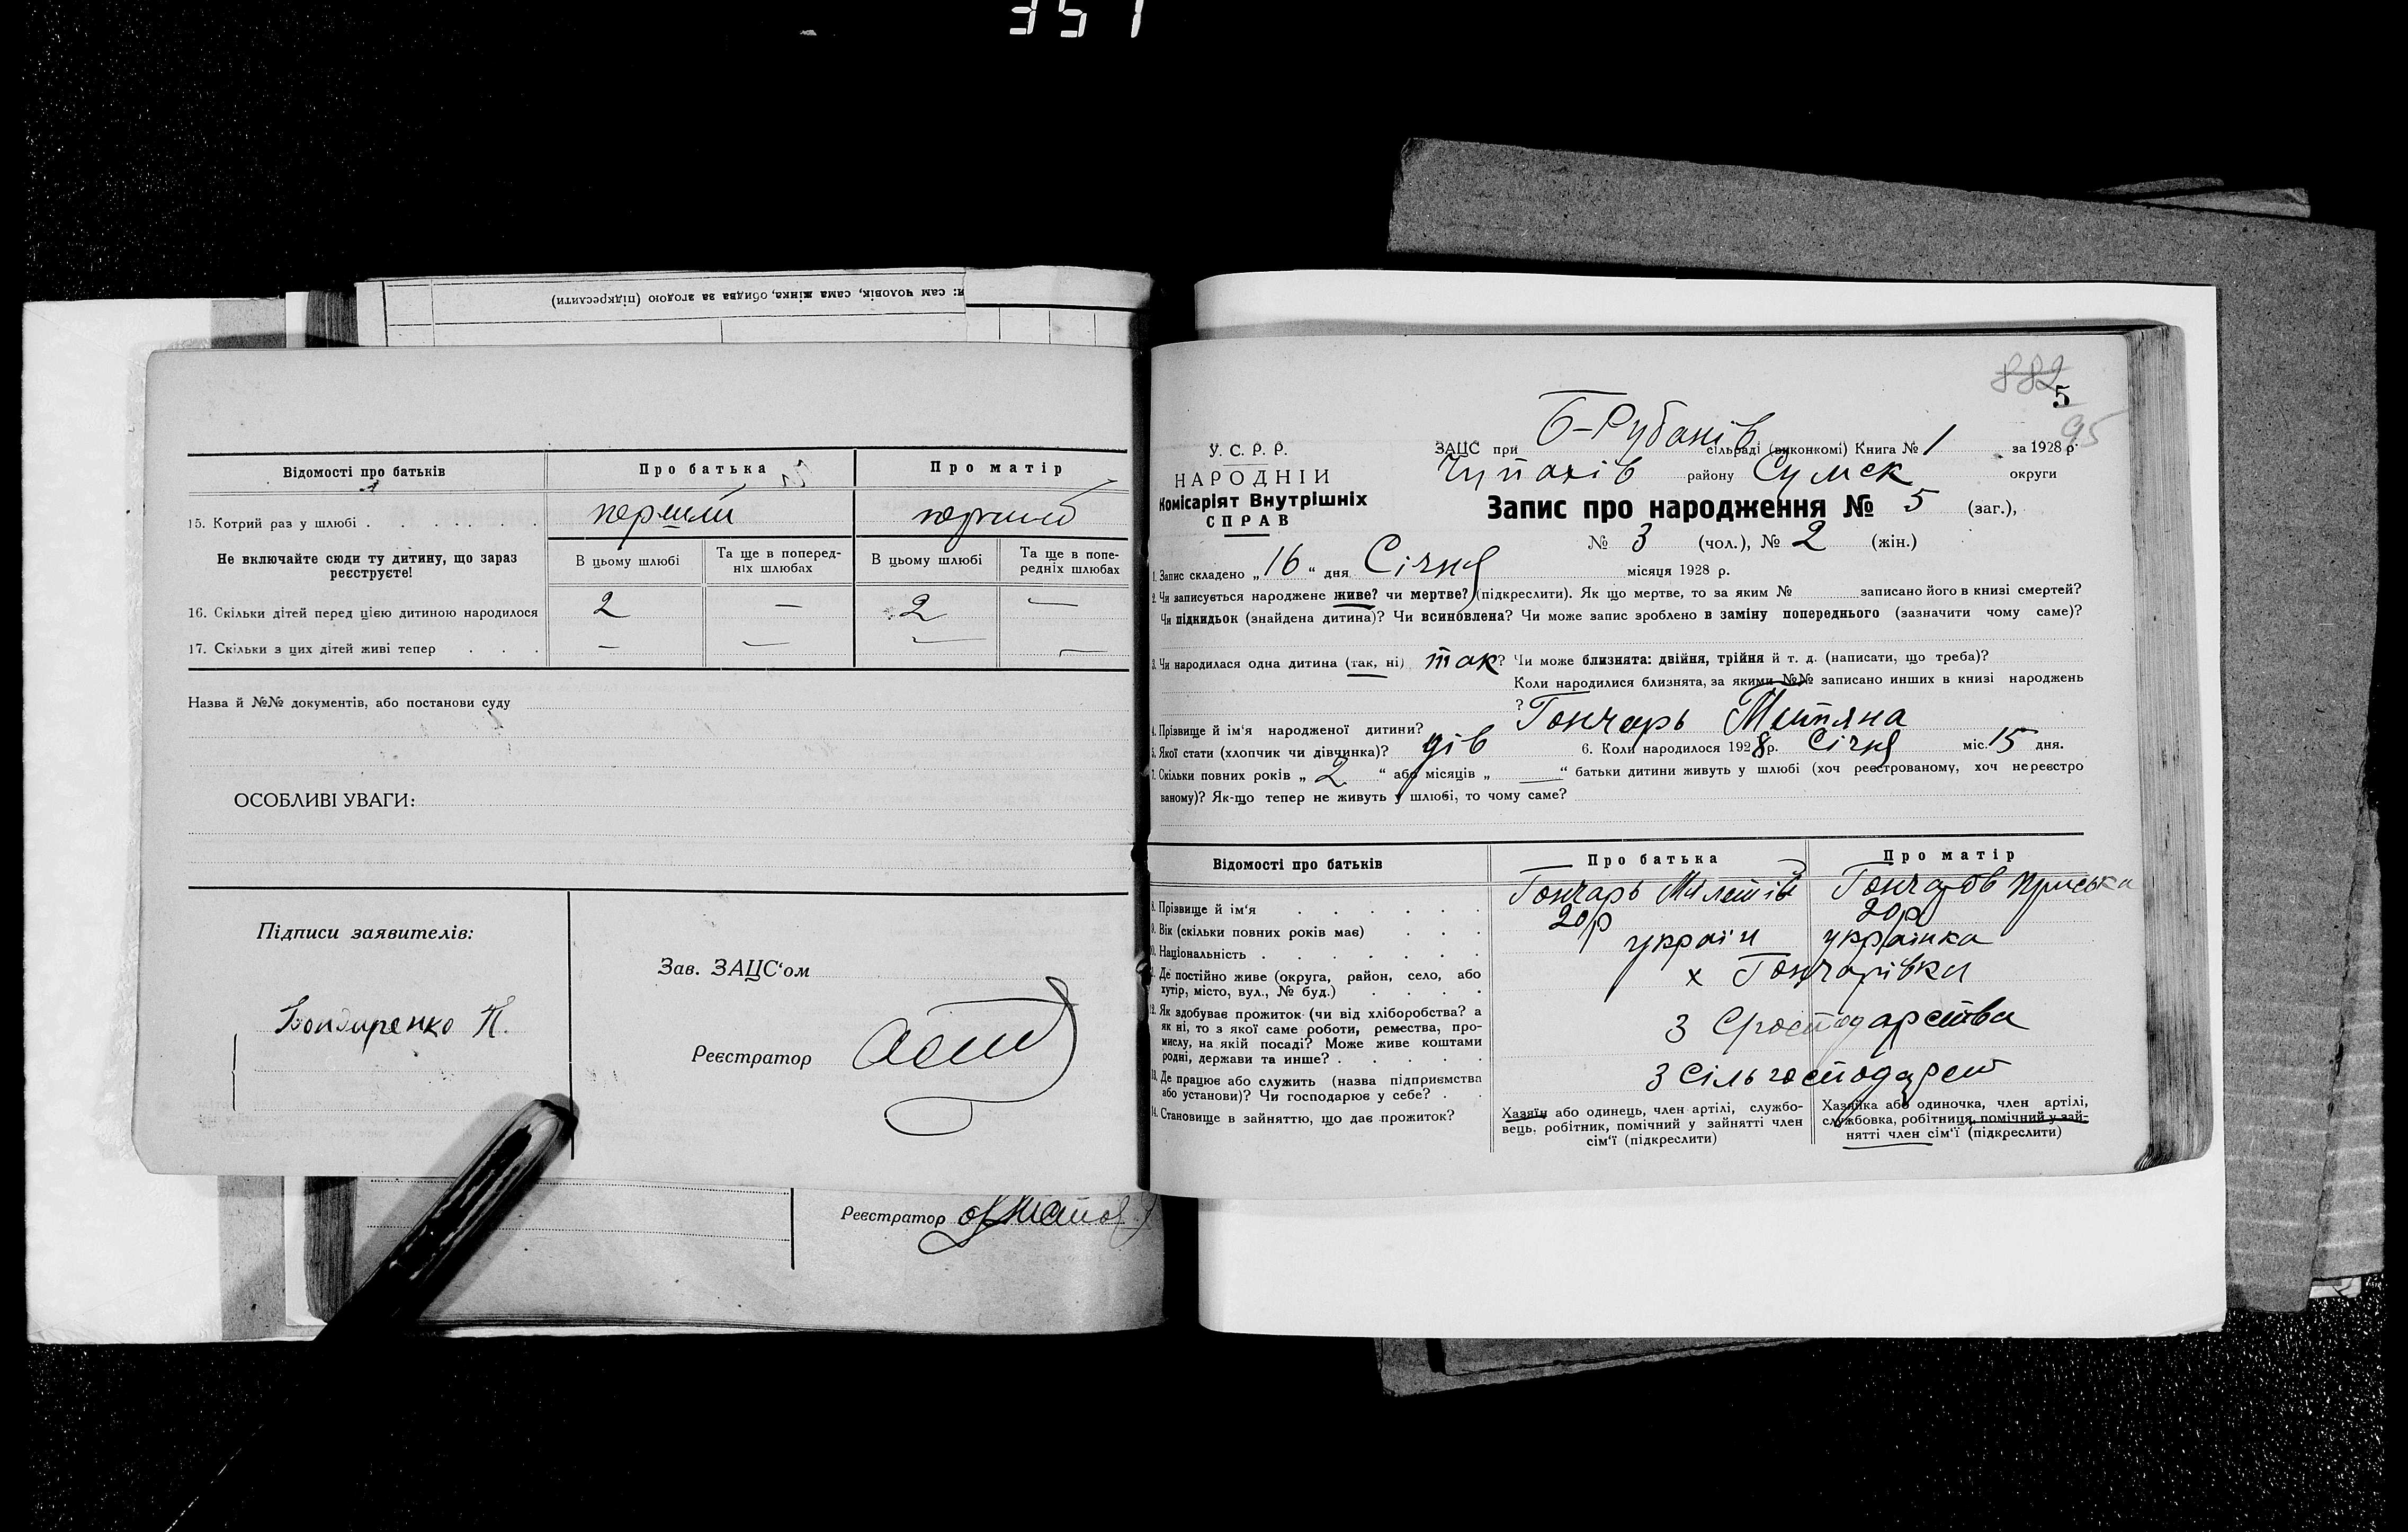 351
и: сам чоловік, сама жінка, обидва за згодою (підкреслити)
Відомості про батьків
Про батька
Про матір
15. Котрий раз у шлюбі
перший
Не включайте сюди ту дитину, що зараз реєструєте!
В цьому шлюбі
Та ще в поперед-
ніх шлюбах
В цьому шлюбі
Та ще в попе-
редніх шлюбах
16. Скільки дітей перед цією дитиною народилося
2 — 2 —
17. Скільки з цих дітей живі тепер
— — — —
Назва й №№ документів, або постанови суду
ОСОБЛИВІ УВАГИ:
Підписи заявителів:
Бондаренко П.
Зав. ЗАЦС'ом
Реєстратор
Реєстратор
882
5
95
У. С. Р. Р.
НАРОДНІЙ
Комісаріят Внутрішніх
СПРАВ
ЗАЦС при Б-Рубанів сільраді (виконкомі) Книга № 1 за 1928 р.
Чупахів району Сумск округи
Запис про народження № 5 (заг.),
№ 3 (чол.), № 2 (жін.)
1. Запис складено „16“ дня Січня місяця 1928 р.
2. Чи записується народжене живе? чи мертве? (підкреслити). Як що мертве, то за яким № записано його в книзі смертей?
Чи підкидьок (знайдена дитина)? Чи всиновлена? Чи може запис зроблено в заміну попереднього (зазначити чому саме)?
3. Чи народилася одна дитина (так, ні) так? Чи може близнята: двійня, трійня й т. д. (написати, що треба)?
Коли народилися близнята, за якими №№ записано инших в книзі народжень
?
4. Прізвище й ім'я народженої дитини? Гончарь Тетяна
5. Якої стати (хлопчик чи дівчинка)? дів 6. Коли народилося 1928 р. Січня міс. 15 дня.
7. Скільки повних років „ 2 “ або місяців „ — “ батьки дитини живуть у шлюбі (хоч реєстрованому, хоч нереєстро
ваному)? Як-що тепер не живуть у шлюбі, то чому саме?
Відомості про батьків
Про батька
Про матір
8. Прізвище й ім'я
Гончарь
9. Вік (скільки повних років має)
20р 20р
10. Національність
україн українка
11. Де постійно живе (округа, район, село, або
хутір, місто, вул., № буд.)
х Гончарівка
12. Як здобуває прожиток (чи від хліборобства? а
як ні, то з якої саме роботи, ремества, про-
мислу, на якій посаді? Може живе коштами
родні, держави та инше?
З
13. Де працює або служить (назва підприємства
або установи)? Чи господарює у себе?
З сільгосподарст
14. Становище в зайняттю, що дає прожиток?
Хазяїн або одинець, член артілі, службо-
вець, робітник, помічний у зайнятті член
сім'ї (підкреслити)
Хазяйка або одиночка, член артілі,
службовка, робітниця, помічний у зай-
нятті член сім'ї (підкреслити)